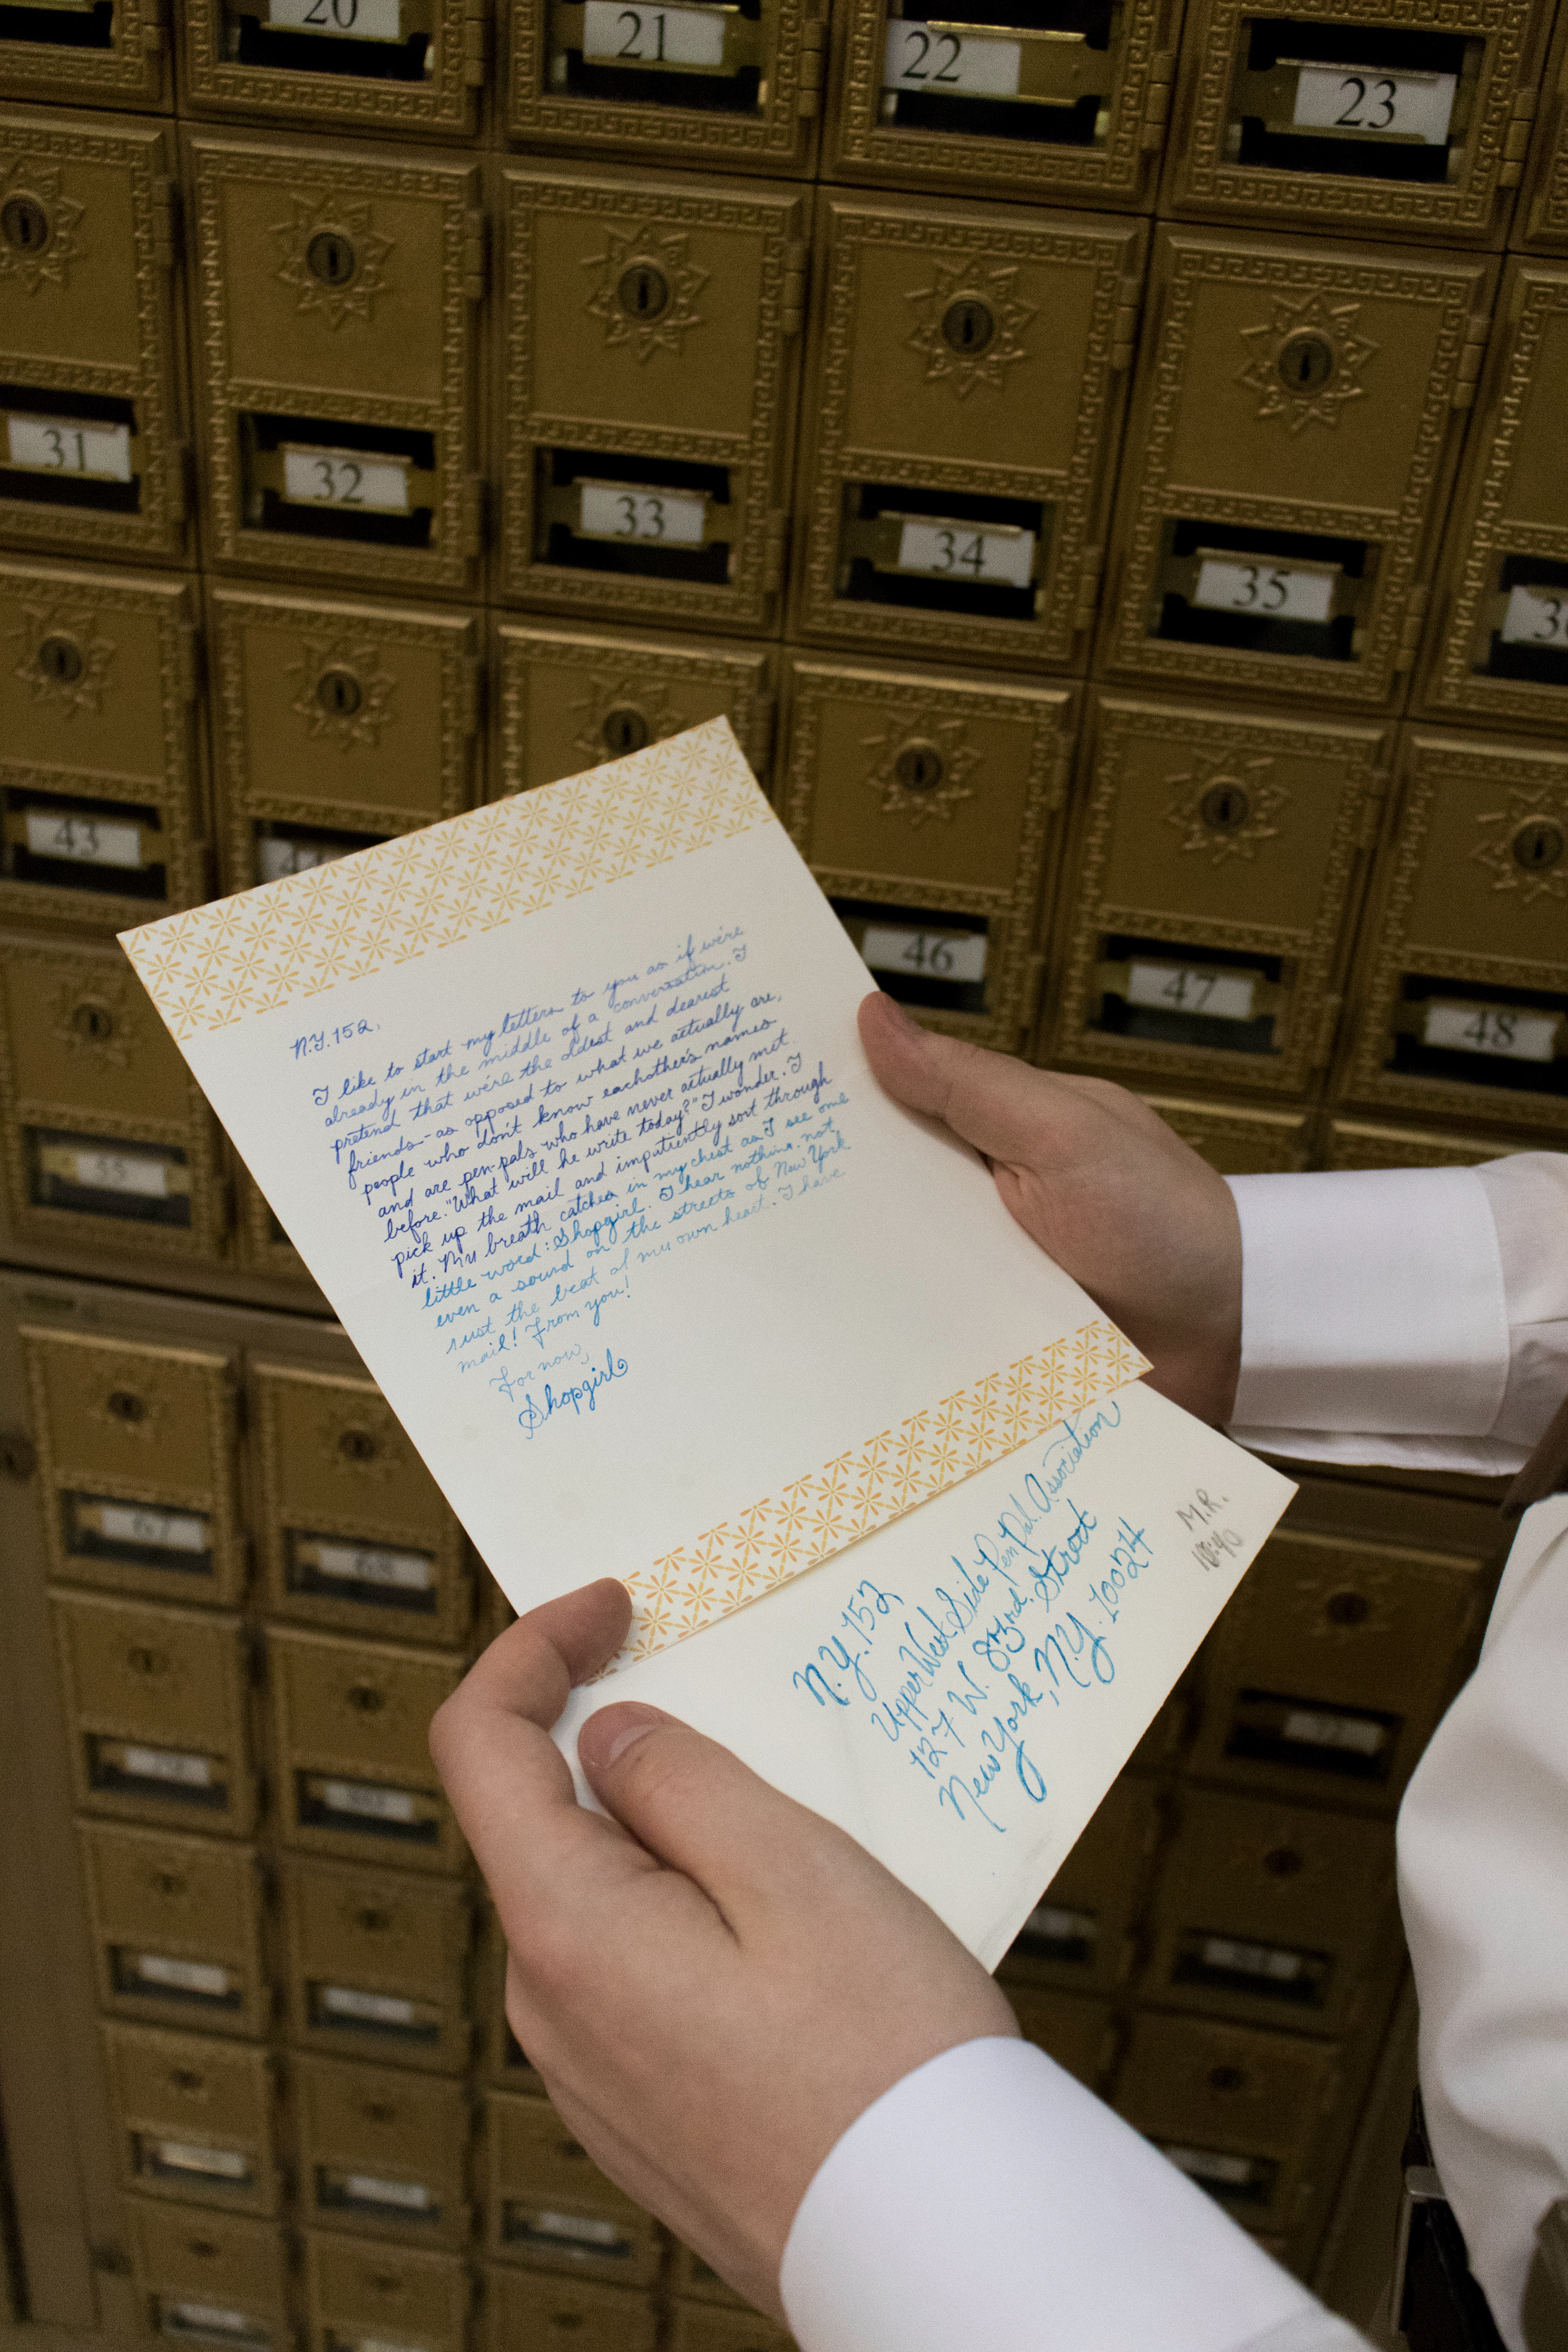 20
21
22
23
31
32
33
34
35
43
44
46
47
48
N.Y.152,
I like to start my letters to you as if we're
already in the middle of a conversation. I
pretend that we're the oldest and dearest
friends - as opposed to what we actually are,
people who don't know eachother's names
and are pen-pals who have never actually met
before. "What will he write today?" I wonder. I
pick up the mail and impatiently sort through
it. My breath catches in my chest as I see one
little word: Shopgirl. I hear nothing, not
even a sound on the streets of New York
just the beat of my own heart. I have
mail! From you!
For now,
Shopgirl
N.Y.152
Upper West Side Pen Pal Association
127 W. 83rd. Street
New York, N.Y. 10024
M.R.
67
68